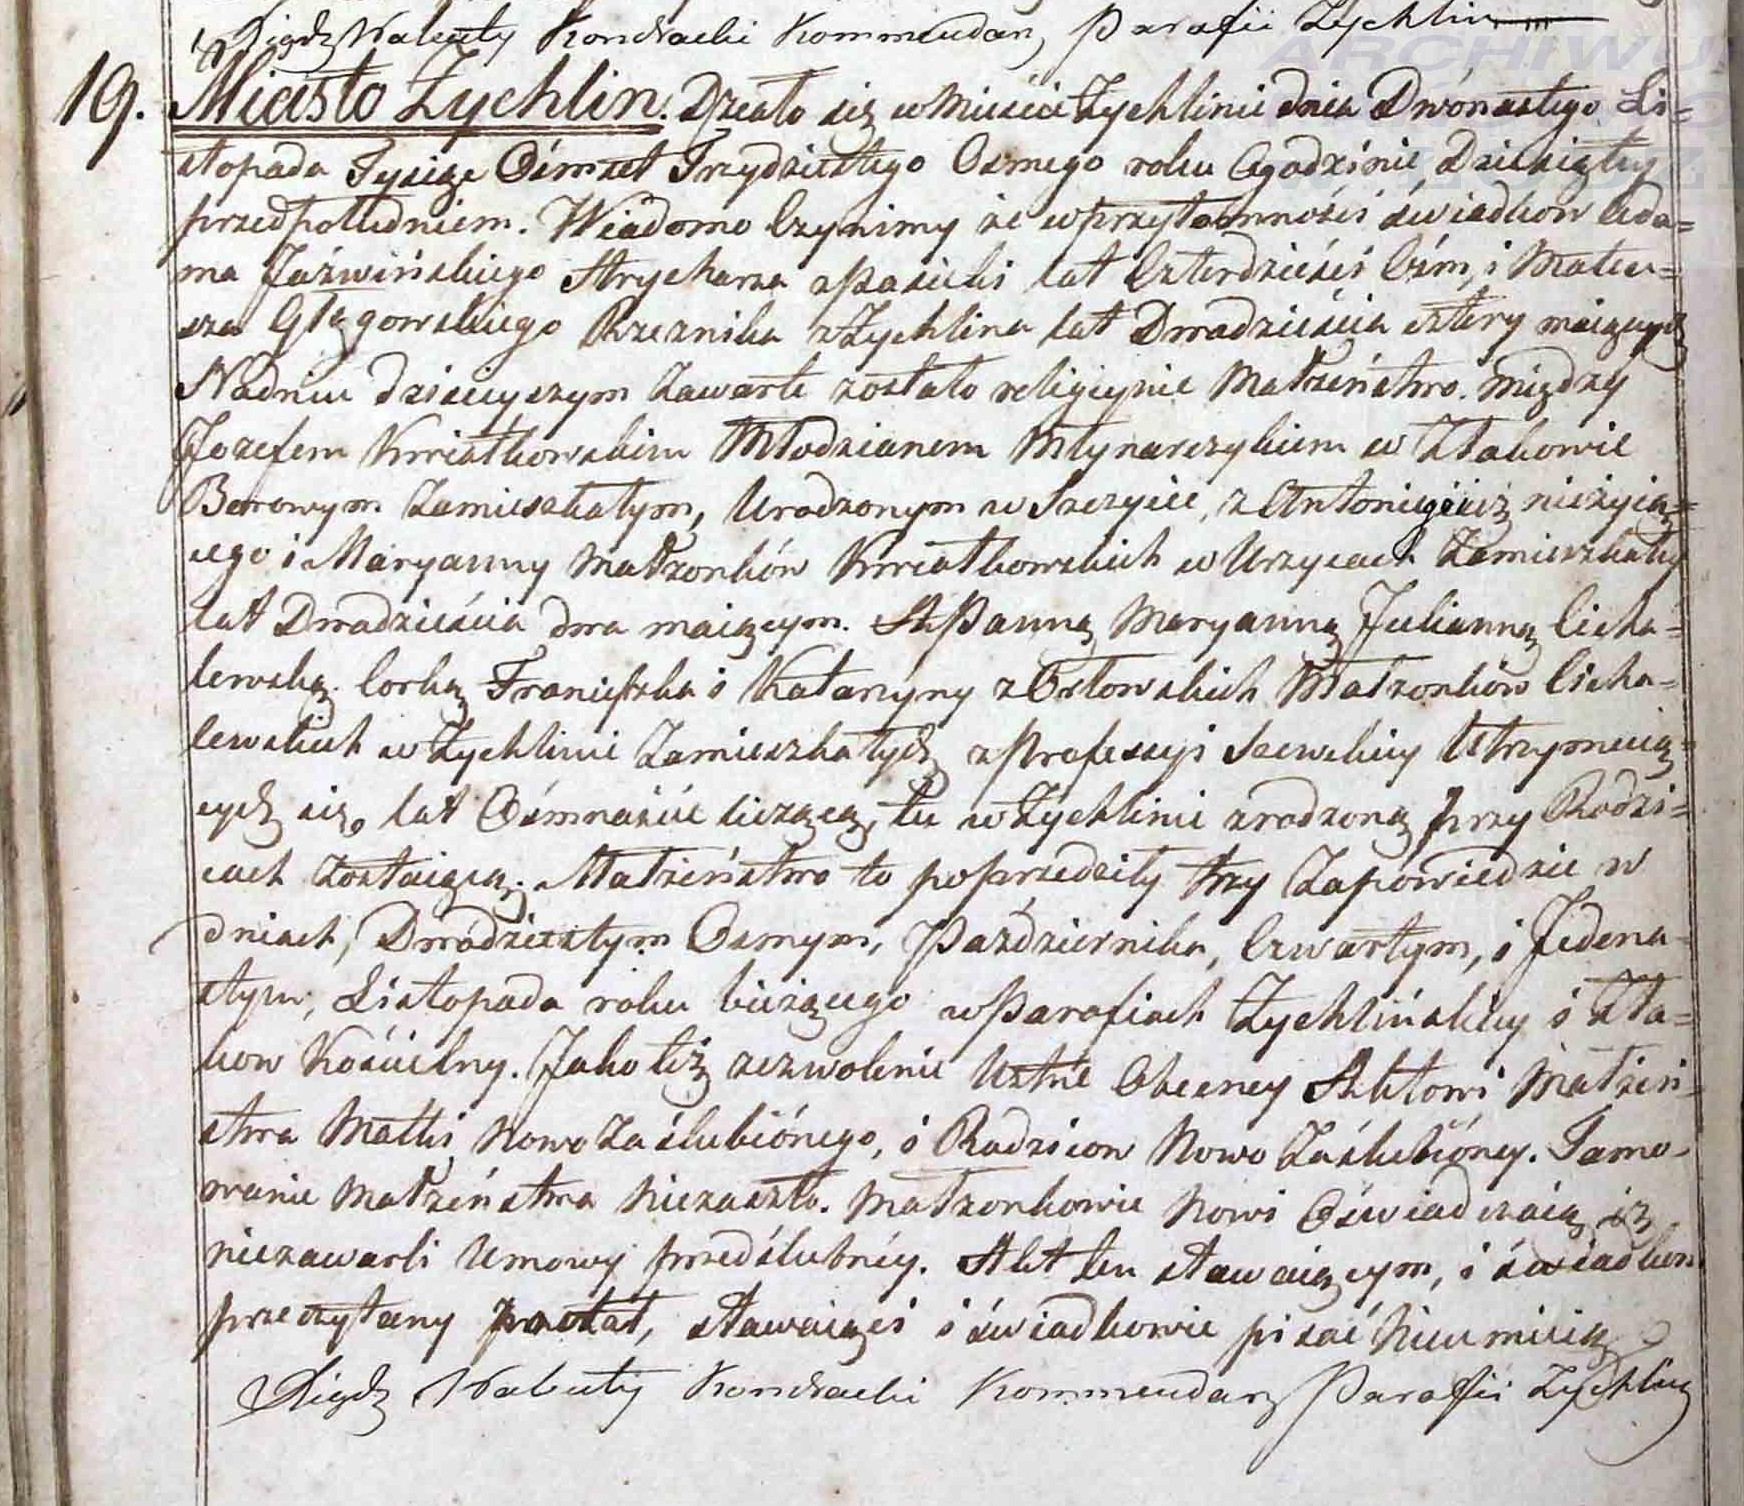 Xiądz Walenty Kondracki Kommendarz Parafii Żychlin
ARCHIWU
19. Miasto Żychlin. Działo się w Mieście Żychlinie dnia Dwónastego Li=
stopada Tysiąc Ośmset Trzydziestego Osmego roku Ogodzinie Dziesiątey
przedpołudniem. Wiadomo Czynimy że wprzytomności świadkow Ada=
ma Jaźwińskiego Strycharza zPasieki lat Czterdzieści Ośm, i Mateu=
sza Głągowskiego Rzeznika zŻychlina lat Dwadzieścia cztery maiących
Nadniu dzisieyszym Zawarte zostało religiynie Małżeństwo. między
Jozefem Kwiatkowskim Młodzianem Młynarczykiem w Złakowie
Borowym Zamieszkałym, Urodzonym w Szczycie, z Antoniego iuż nieżyią=
cego i Maryanny Małżonków Kwiatkowskich w Urzycach Zamieszkałey
lat Dwadzieścia dwa maiącym. A Panną Maryanną Julianną Cicha=
lewską. Corką Franciszka i Katarzyny z Orłowskich Małżonków Cicha=
lewskich w Żychlinie Zamieszkałych zProfessyi Szewskiey Utrzymuią=
cych się, lat Ośmnaście liczącą, tu w Żychlinie zrodzoną przy Rodzi=
cach Zostaiącą. Małżeństwo to poprzedziły trzy Zapowiedzie w
dniach, Dwódziestym Osmym, Października, Czwartym, i Jedena-
stym, Listopada roku bieżącego wParafiach Żychlińskiey i Zła=
kow Kościelny. Jako też zezwolenie Ustne Obecney Aktowi Małżeń-
stwa Matki Nowo Zaślubiónego, i Rodzicow Nowo Zaślubióney. Tamo-
wanie Małżeństwa Niezaszło. Małżonkowie Nowi Oświadczaią iż
niezawarli Umowy przedślubnéy. Akt ten stawaiącym, i świadkom
przeczytany został, stawaiący i świadkowie pisać Nieumieią
Xiądz Walenty Kondracki Kommendarz Parafii Żychlin